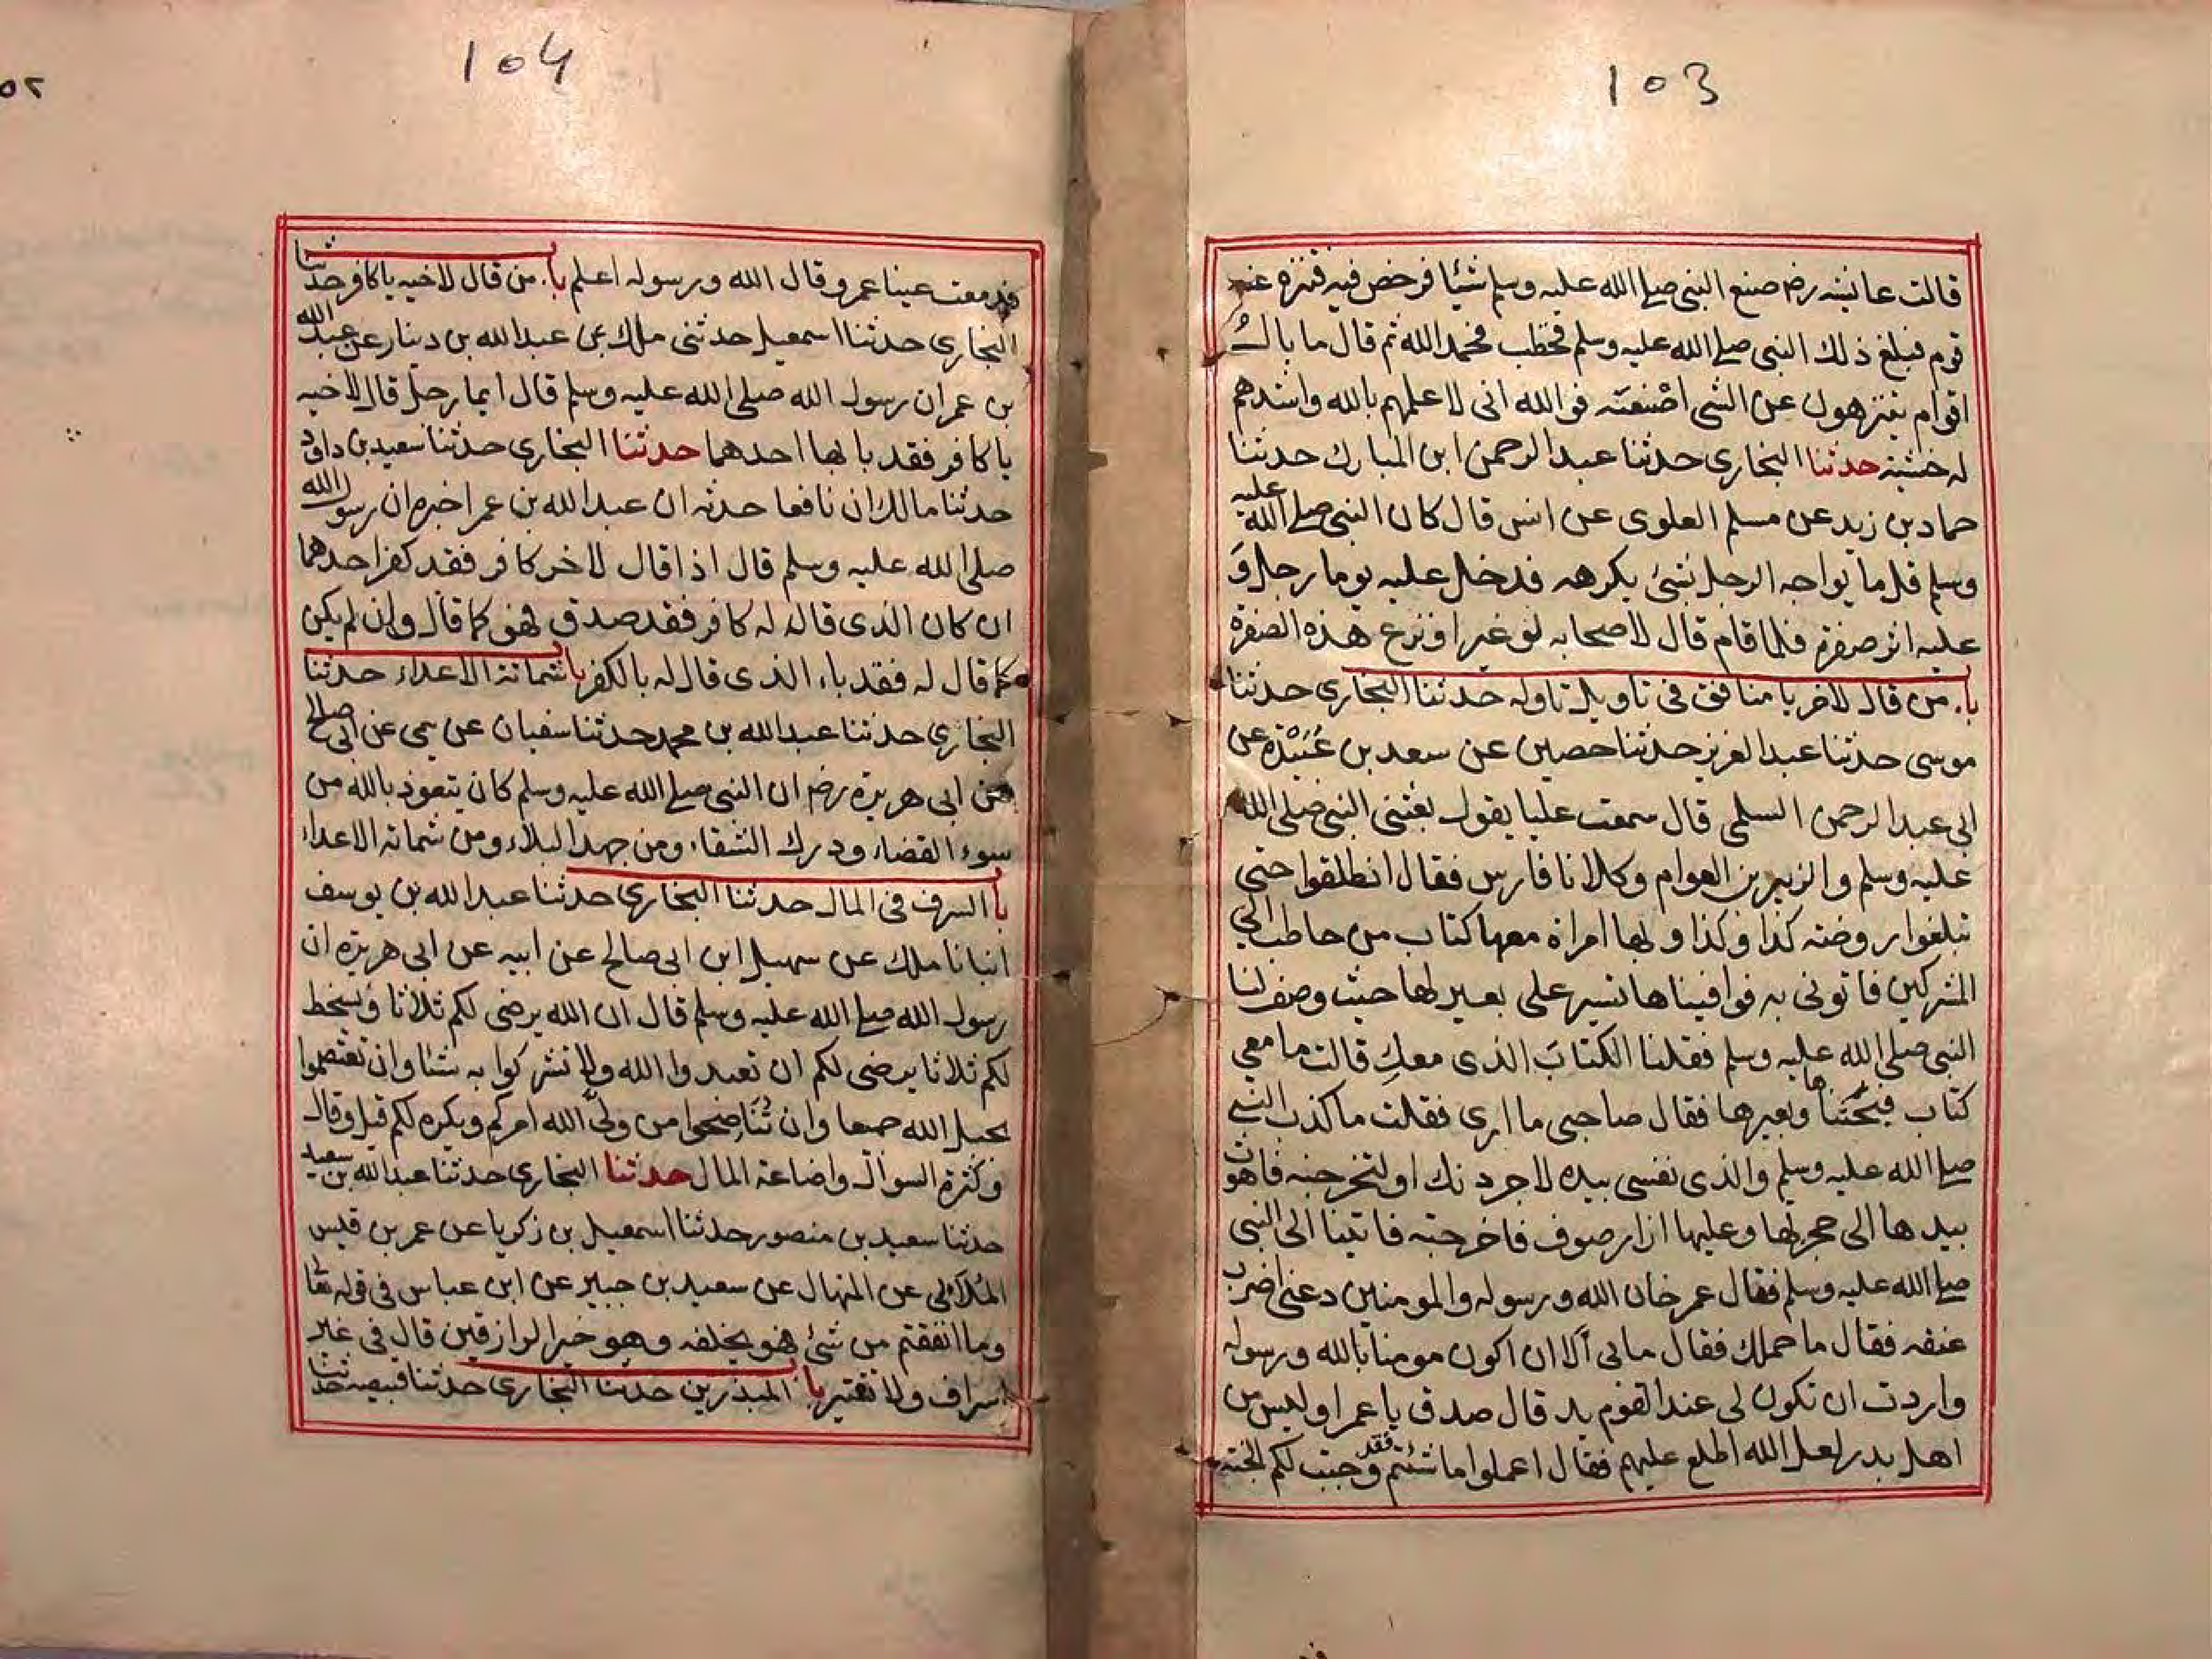 103
قالت عائشه رضـ صنع النبى صلى الله عليه وسلم شيئا فرخص فيه فتنزه عنه
قوم فبلغ ذلك النبى صلى الله عليه وسلم فخطب فحمد الله ثم قال ما بالُ
اقوام يتنزهون عن الشى اصْنعه فوالله انى لاعلمهم بالله واشدهم
له خشية حدثنا البخارى حدثنا عبد الرحمن ابن المبارك حدثنا
حماد بن زيد عن مسلم العلوى عن انس قال كان النبى صلى الله عليه
وسلم قل ما يواجه الرجل بشئ يكرهه فدخل عليه يوما رجل وَ
عليه اثر صفرة فلما قام قال لاصحابه لو غير او نزع هذه الصفرة
با. من قال لاخر يا منافق فى تاويل تاوله حدثنا البخارى حدثنا
موسى حدثنا عبد العزيز حدثنا حصين عن سعد بن عُبَيْدَة عن
ابى عبد الرحمن السلمى قال سمعت عليا يقول بعثنى النبى صلى الله
عليه وسلم والزبير بن العوام وكلانا فارس فقال انطلقوا حتى
تبلغوا روضه كذا وكذا و بها امراة معها كتاب من حاطب الى
المشركين فاتونى به فوافيناها تسير على بعير لها حيث وصف لنا
النبى صلى الله عليه وسلم فقلنا الكتابَ الذى معكِ قالت ما معى
كتاب فبحثناها وبعيرها فقال صاحبى ما ارى فقلت ما كذب النبى
صلى الله عليه وسلم والذى نفسى بيده لاجردنك او لتخرجنه فاهوت
بيدها الى حجزتها وعليها ازار صوف فاخرجته فاتينا الى النبى
صلى الله عليه وسلم فقال عمر خان الله و رسوله والمومنين دعنى اضرب
عنقه فقال ما حملك فقال مابى اَلا ان اكون مومنا بالله ورسوله
واردت ان تكون لى عند القوم يد قال صدق يا عمر اوليس من
اهل بدر لعل الله اطلع عليهم فقال اعملوا ما شئتم فقد وجبت لكم الجنه
104
٥٢
فدمعت عينا عمر و قال الله و رسوله اعلم با. من قال لاخيه يا كافر حدثنا
البخارى حدثنا اسمعيل حدثنى ملك عن عبد الله بن دينار عن عبد الله
بن عمر ان رسول الله صلى الله عليه وسلم قال ايما رجل قال لاخيه
يا كافر فقد با بها احدهما حدثنا البخارى حدثنا سعيد بن داود
حدثنا مالك ان نافعا حدثه ان عبد الله بن عمر اخبره ان رسول الله
صلى الله عليه وسلم قال اذا قال لاخر كافر فقد كفر احدهما
ان كان الذى قال له كافر فقد صدق فهو كما قال وان لم يكن
كما قال له فقد باء الذى قال له بالكفر با شماتة الاعداء حدثنا
البخارى حدثنا عبد الله بن محمد حدثنا سفيان عن سمى عن ابى صالح
عن ابى هريرة رضـ ان النبى صلى الله عليه وسلم كان يتعوذ بالله من
سوء القضاء ودرك الشقاء ومن جهد البلاء ومن شماته الاعداء
با السرف فى المال حدثنا البخارى حدثنا عبد الله بن يوسف
انبانا ملك عن سهيل ابن ابى صالح عن ابيه عن ابى هريرة ان
رسول الله صلى الله عليه وسلم قال ان الله يرضى لكم ثلاثا ويسخط
لكم ثلاثا يرضى لكم ان تعبدوا الله ولا تشركوا به شئا وان تعتصموا
بحبل الله جميعا وان تُنَاصِحوا من ولّى الله امركم ويكره لكم قيل وقال
وكثرة السوال واضاعة المال حدثنا البخارى حدثنا عبد الله بن سعيد
حدثنا سعيد بن منصور حدثنا اسمعيل بن زكريا عن عمر بن قيس
المُلآئى عن المنهال عن سعيد بن جبير عن ابن عباس فى قوله تعا
وما انفقتم من شئ فهو يخلفه وهو خير الرازقين قال فى غير
اسراف ولا تقتير با المبذرين حدثنا البخارى حدثنا قبيصه حدثنا